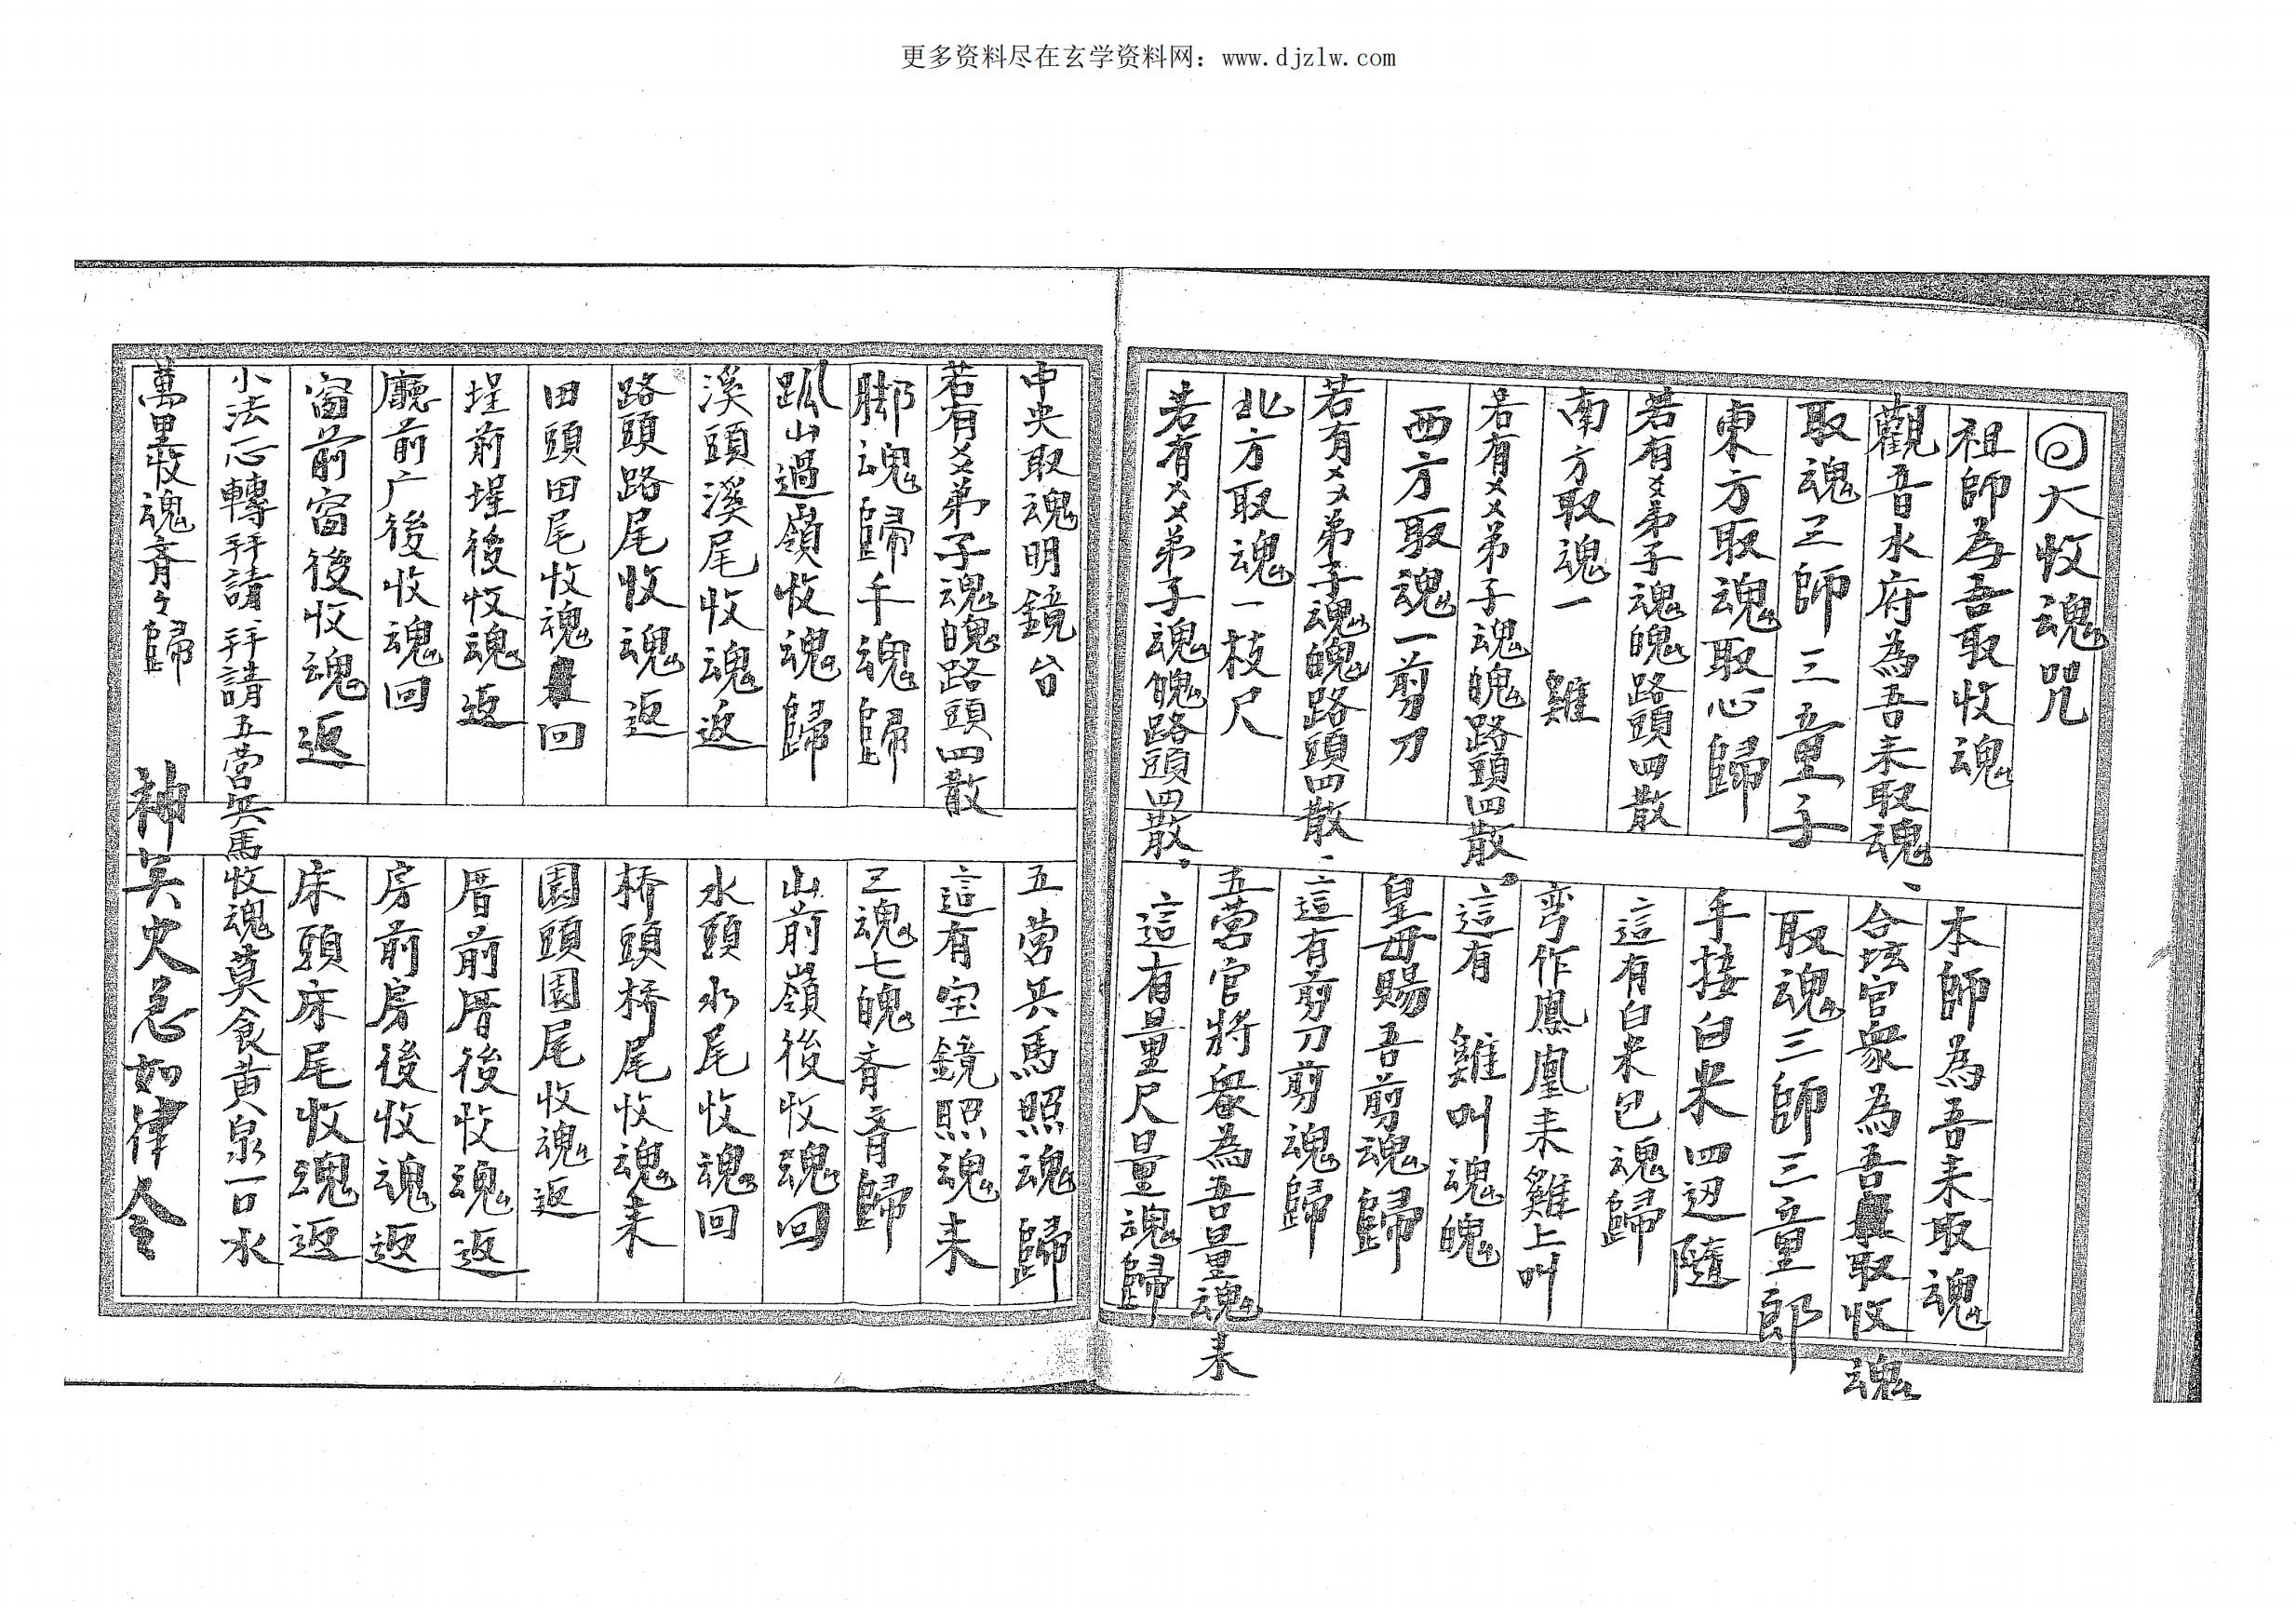 更多资料尽在玄学资料网：www.djzlw.com
大收魂咒
祖師為吾取收魂 本師為吾来取魂
觀音水府為吾来取魂、合坛官衆為吾取收魂
取魂三師三童子 取魂三師三童郎
東方取魂取心歸 手接白米四边隨
若有㐅㐅弟子魂魄路頭四散 這有白米包魂歸
南方取魂一 雞 弯作鳳凰来雞上叫
若有㐅㐅弟子魂魄路頭四散。這有 雞叫魂魄
西方取魂一剪刀 皇母賜吾剪魂歸
若有㐅㐅弟子魂魄路頭四散、這有剪刀剪魂歸
北方取魂一枝尺 五营官將衆為吾量魂来
若有㐅㐅弟子魂魄路頭四散、這有量尺量魂歸
中央取魂明鏡台 五营兵馬照魂歸
若有㐅㐅弟子魂魄路頭四散 這有宝鏡照魂来
脚魂歸手魂歸 三魂七魄齐齐歸
山過嶺收魂歸 山前嶺後收魂回
溪頭溪尾收魂返 水頭水尾收魂回
路頭路尾收魂返 桥頭桥尾收魂来
田頭田尾收魂回 園頭園尾收魂返
埕前埕後收魂返 厝前厝後收魂返
廳前广後收魂回 房前房後收魂返
窗前窗後收魂返 床頭床尾收魂返
小法心轉拜請、拜請五营兵馬收魂莫食黄泉一口水
萬里收魂齐々歸 神兵火急如律令